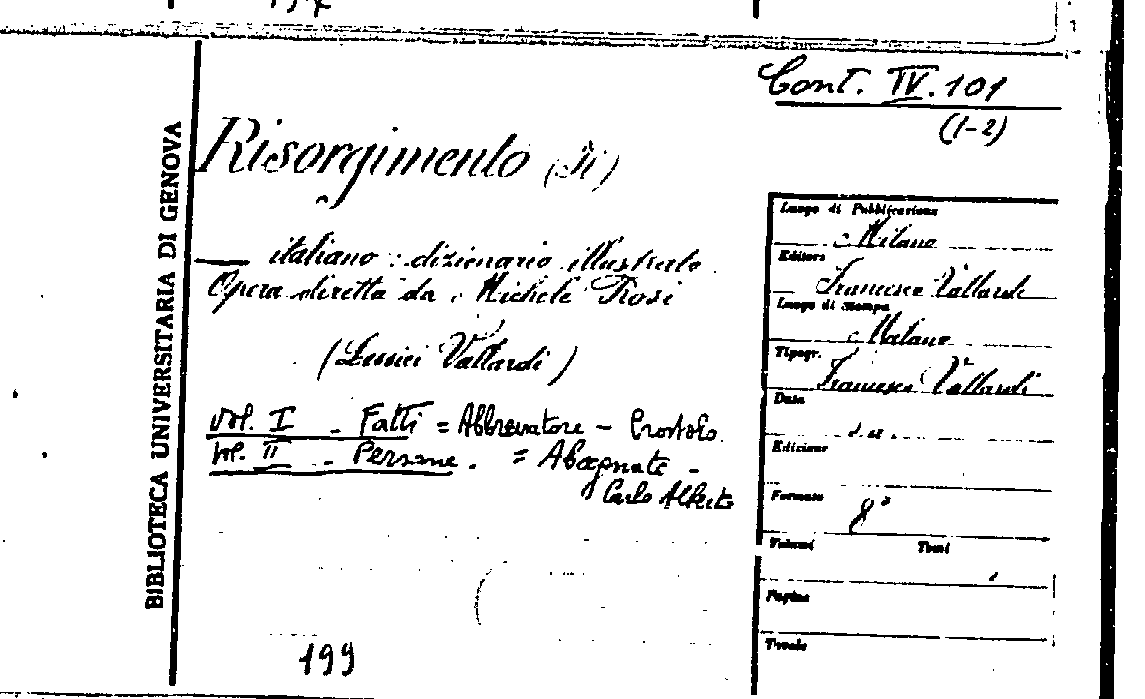 BIBLIOTECA UNIVERSITARIA DI GENOVA
Cont. IV. 101
(1-2)
Risorgimento (Il)
— italiano: dizionario illustrato
Opera diretta da Michele Rosi
(Lessici Vallardi)
vol. I - Fatti = Abbreviatore - Crostolo
vol. II - Persone. = Abagnate -
Carlo Alberto
199
Luogo di Pubblicazione
Milano
Editore
Francesco Vallardi
Luogo di stampa
Milano
Tipogr.
Francesco Vallardi
Data
s.a.
Edizione
Formato
8°
Volumi Tomi
Pagine
Tavole